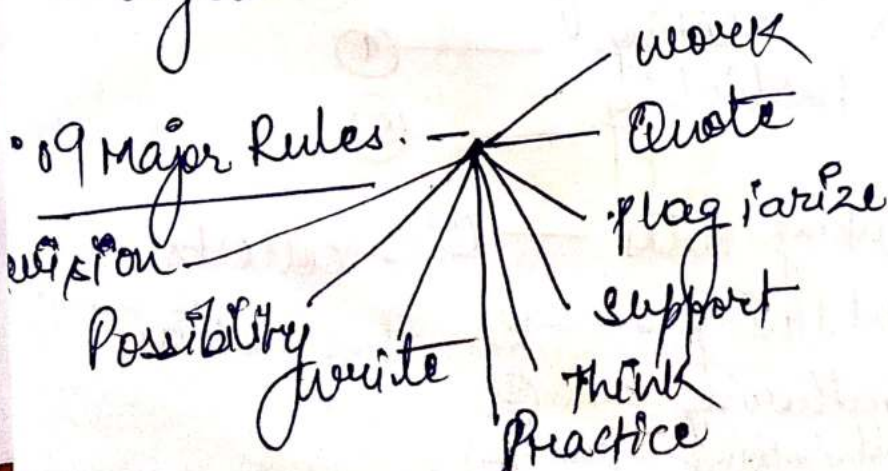 work
• 09 Major Rules. –
Quote
Plagiarize
Support
Think
Practice
write
Possibility